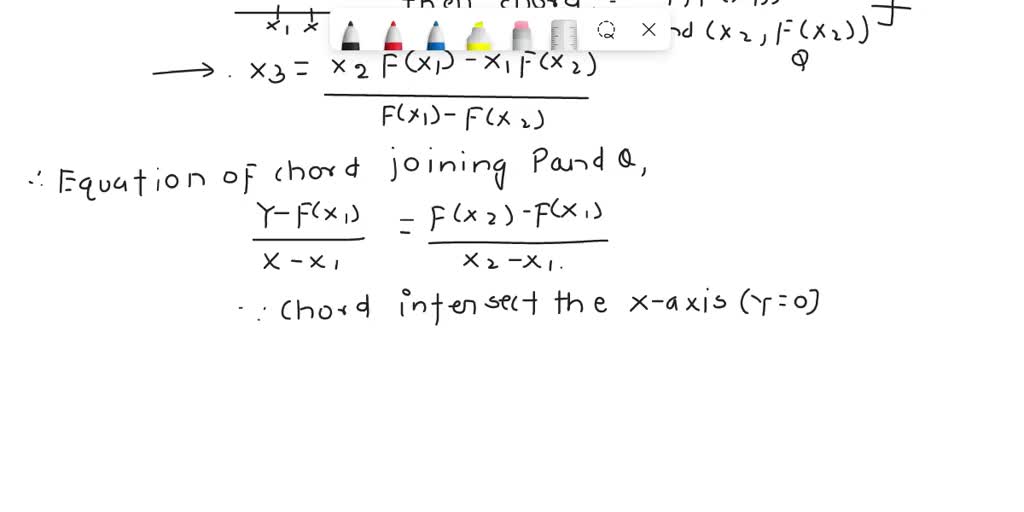 x₁ x
and (x₂, F(x₂))
Q
→ . x₃ = x₂ F(x₁) - x₁ F(x₂)
F(x₁) - F(x₂)
∴ Equation of chord joining P and Q,
Y - F(x₁) = F(x₂) - F(x₁)
x - x₁ x₂ - x₁.
∵ chord intersect the x-axis (Y=0)